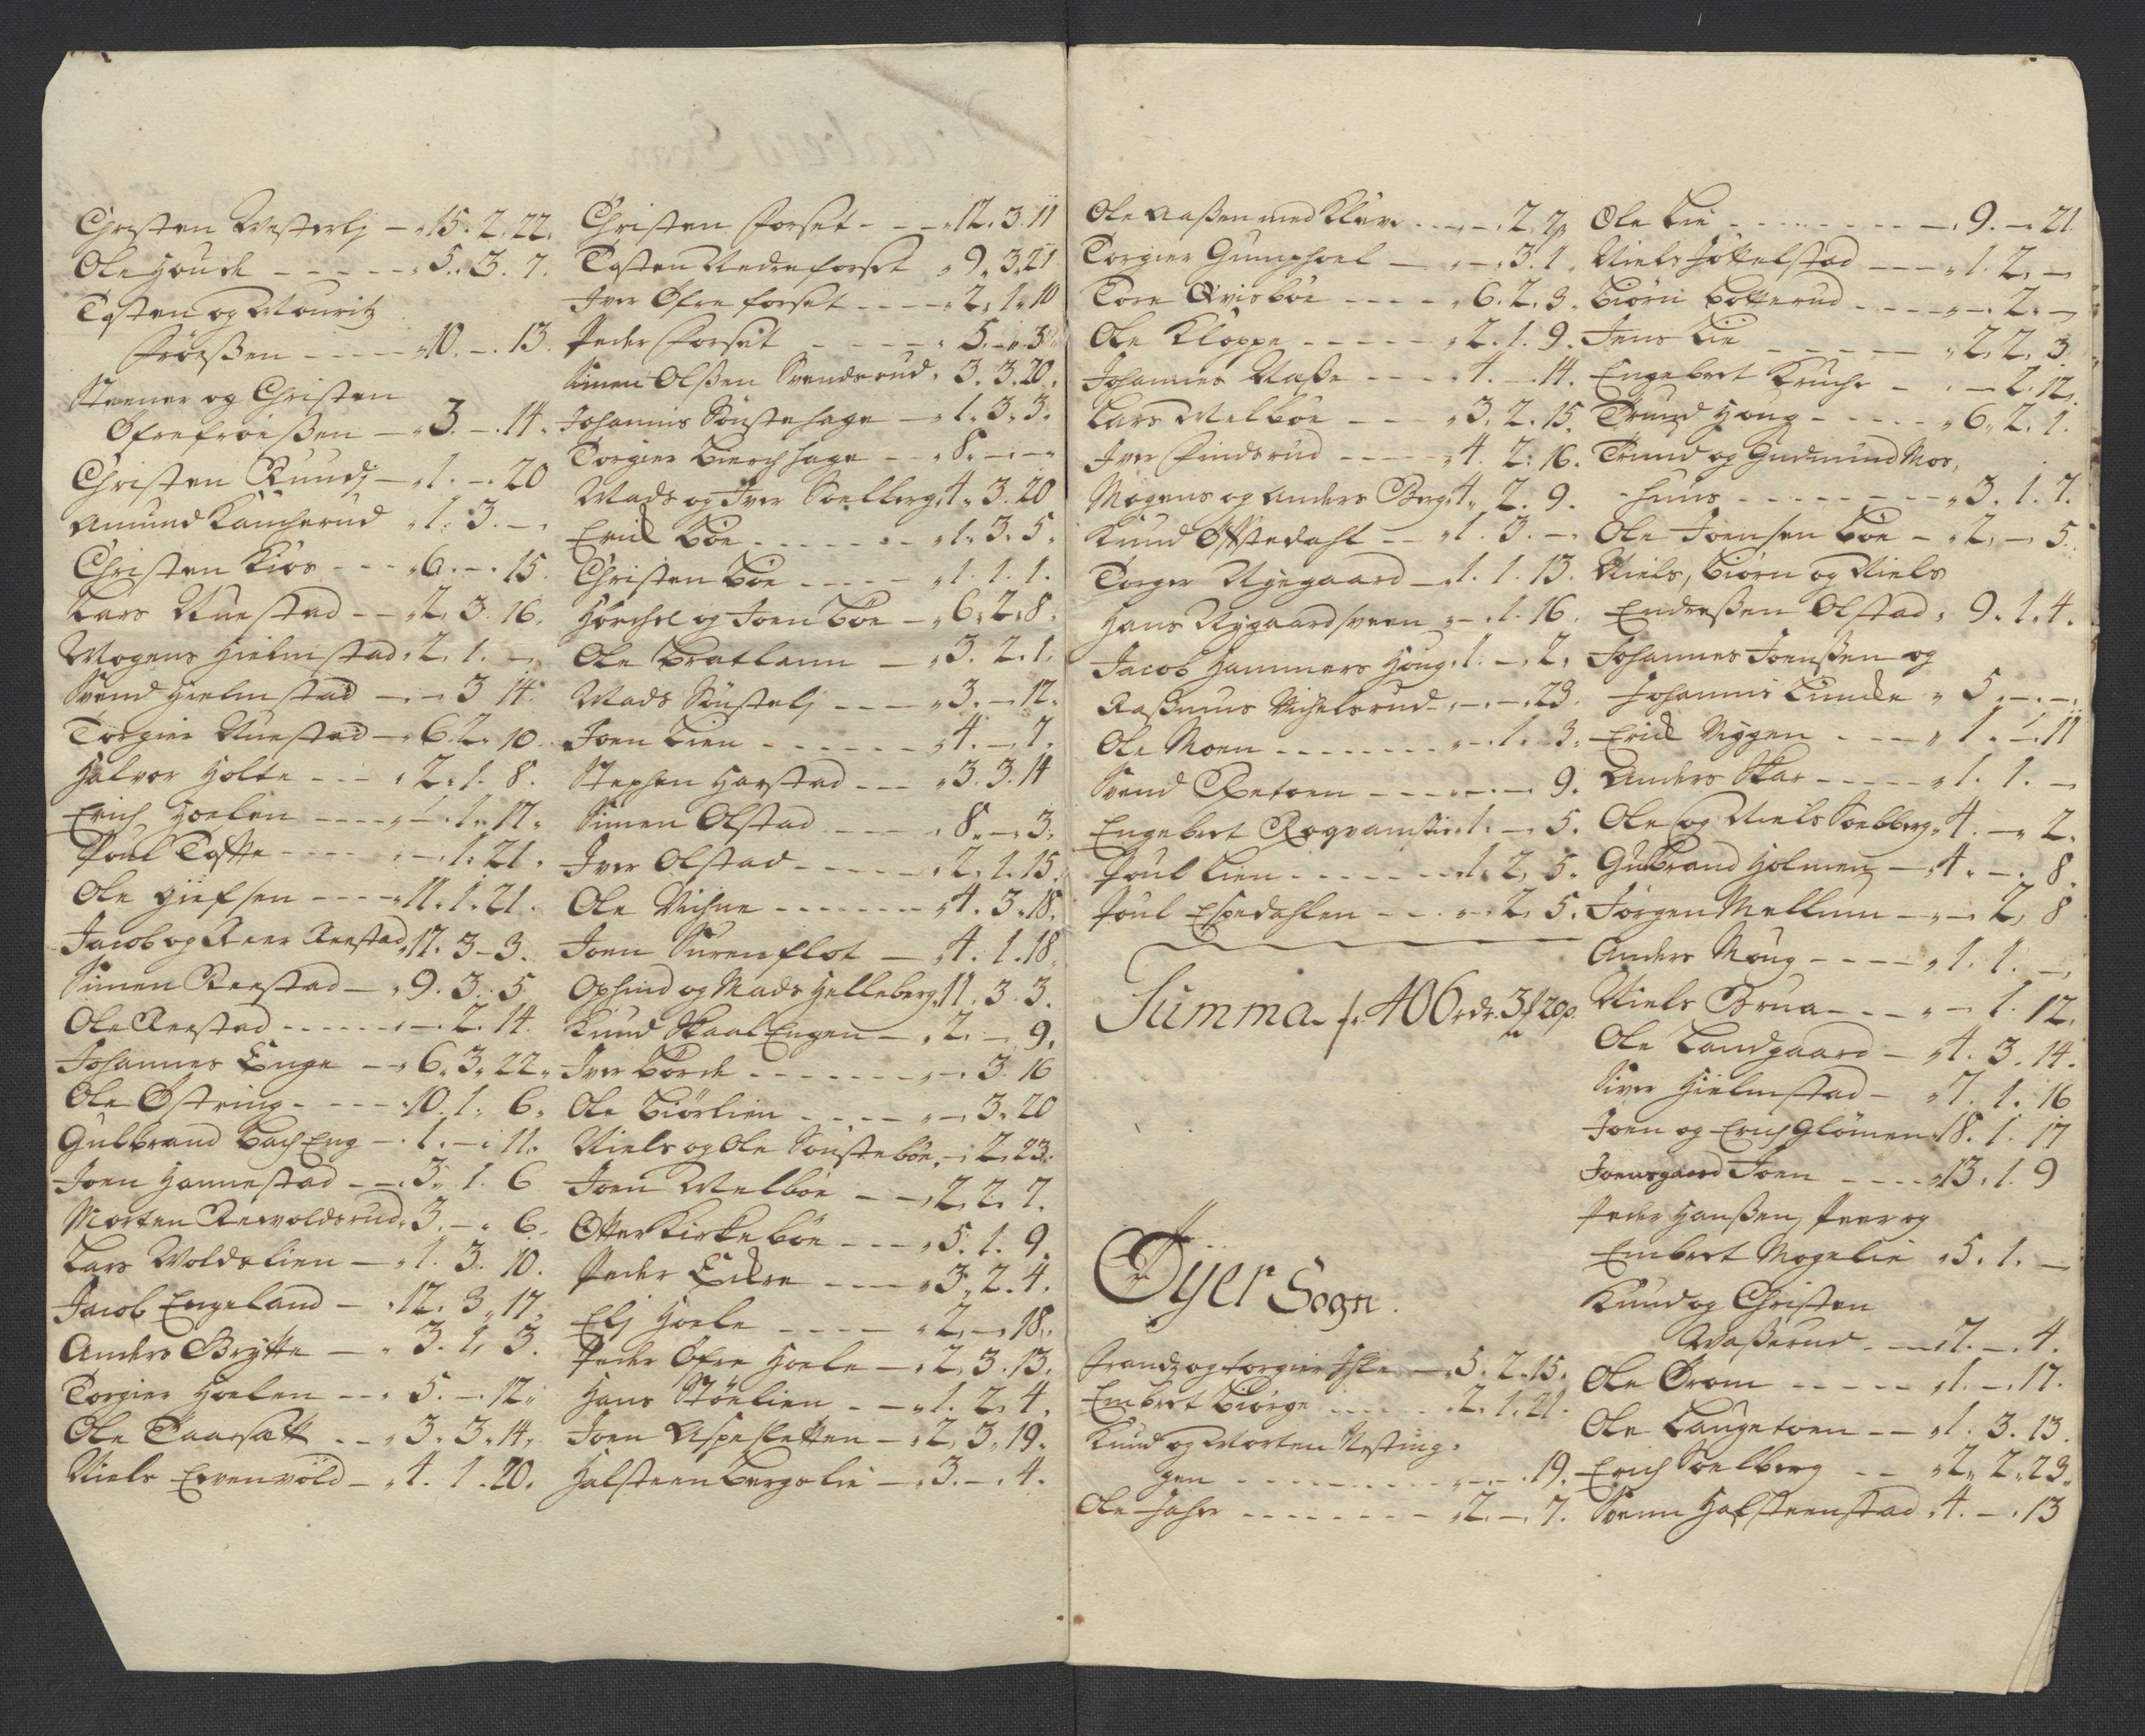 Christen Westerlj — 15. 2. 22.
Ole Houde - - - - - 5. 3. 7.
Tosten og Mouritz
Frøisßen - - - - 10. -. 13.
Steener og Christen
Øfrefroisßen — 3. -. 14.
Christen Rundj — 1. -. 20
Amund Kancherud 1. 3. -.
Christen Kios - - - 6. -. 15.
Lars Ruestad - - 2. 3. 16.
Mogens Hielmstad 2. 1. -
Svend Hielmstad - - 3. 14.
Torgier Ruestad — 6. 2. 10.
Halvor Holte - - - 2. 1. 8.
Erich Hoelen - - - - 1. 17.
Poul Toffte - - - - -. 1. 21.
Ole Giefsen - - - - 11. 1. 21.
Jacob og Reer Reestad 17. 3 - 3.
Simen Reestad — 9. 3. 5
Ole Reestad - - - - - -. 2. 14.
Johannes Enge — 6. 3. 22.
Ole Østring - - - - 10. 1. 6.
Gulbrand Bach Eng — 1. -. 11.
Joen Hannestad - - 3. 1. 6
Morten Rewoldsrud 3. -. 6.
Lars Woldslien — 1. 3. 10.
Jacob Engeland — 12. 3. 17.
Anders Brytte — 3. 1. 3.
Torgier Hoelen - - 5. -. 12.
Ole Taarsatt - - 3. 3. 14.
Niels Evenvold — 4. 1. 20.
Christen Forset - - - 12. 3. 11
Tosten Nedreforset 9. 3. 21
Iver Øfre forset - - - - 2. 1. 10
Peder Forset - - - - 5. -. 3.
Simen Olsßen Svendsrud. 3. 3. 20.
Johannis Sønstehage — 1. 3. 3.
Torgier Bierchhage - - 8. -. -
Mads og Iver Soelberg 4. 3. 20
Erich Bøe - - - - - - - 1. 3. 5.
Christen Bøe - - - - - 1. 1. 1.
Hørchel og Joen Bøe — 6. 2. 8.
Ole Bratlann — 3. 2. 1.
Mads Sønstelj - - - - 3. -. 12.
Joen Lien - - - - - - - 4. -. 7.
Stephen Harstad - - - 3. 3. 14
Simen Olstad - - - - 8. -. 3.
Iver Olstad - - - - - 2. 1. 15.
Ole Nichne - - - - - - 4. 3. 18.
Joen Surenflot — 4. 1. 18.
Ophind og Mads Helleberg 11. 3. 3.
Knud Skaal Engen — 2. - 9.
Iver Børde - - - - - - - -. 3. 16
Ole Biørlien - - - - - - 3. 20
Niels og Ole Sønstebøe. -. 2. 23.
Joen Melbøe - - - 2. 2. 7.
Otter Kirkebøe - - - 5. 1. 9.
Peder Endre - - - - 3. 2. 4.
Elj Hoele - - - - 2. -. 18.
Peder Øfre Hoele — 2. 3. 13.
Hans Støelien - - - 1. 2. 4.
Joen Aspesletten — 2. 3. 19.
Halsteen Bergolie — 3. -. 4.
Ole Aaßen med Klüve - - - -. 2. 7
Torgier Gumphoel — -. 3. 1.
Tore Qvisbøe - - - - 6. 2. 3.
Ole Kloppe - - - - - 2. 1. 9.
Johannes Aaße - - - 4. -. 14.
Lars Melbøe - - - 3. 2. 15.
Iver Findsrud - - - - 4. 2. 16.
Mogens og Anders Berg 4. 2. 9.
Knud Offstedahl - - 1. 3. -.
Torger Nyegaard — 1. 1. 13.
Hans Nygaardsveen -. 1. 16.
Jacob Hammers Houg. 1. -. 2.
Raßmus Nichelsrud - -. -. 23.
Ole Moen - - - - - - - -. 1. 3.
Svend Retoen - - - -. -. 9.
Engebret Rogvamstie 1. -. 5.
Poul Lien - - - - - - - 1. 2. 5.
Poul Espedahlen - - - -. 2. 5.
Summa 406 rdr. 3 20
Øyer Sogn.
Frandz og Torgier Iste — 5. 2. 15.
Embret Biørge - - - - 2. 1. 21.
Knud og Morten Nesting-
gen - - - - - - - - -. -. 19.
Ole Jahr - - - - - - - - 2. -. 7.
Ole Lie - - - - - - - - -. 9. -. 21.
Niels Jøkkelstad - - - 1. 2. -
Biørn Botterud - - - - -. 2. -
Jens Lie - - - - - 2. 2. 3
Engebret Kruche - - - 2. 12.
Trund Houg - - - - - 6. 2. 1.
Trund og Gudmund Mos-
huus - - - - - - - - 3. 1. 7.
Ole Joensen Bøe - 2. - 5.
Niels, Biørn og Niels
Endresßen Olstad. 9. 1. 4.
Johannes Joensßen og
Johannis Lunde 5. -. -.
Erich Nyggen - - - - 1. 1. 11
Anders Skar - - - - - 1. 1. -
Ole og Niels Soelberg. 4. -. 2.
Gulbrand Holmen — 4. -. 8.
Jørgen Mellum - - - 2. 8
Anders Moug - - - - 1. 1. -
Niels Brua - - - - - 1. 12.
Ole Landgaard — 4. 3. 14.
Siver Hielmstad — 7. 1. 16
Joen og Erich Glømen 18. 1. 17
Joensgaard Joen - - - - 13. 1. 9
Peder Hansßen, Peer og
Embret Mogelie 5. 1. -
Knud og Christen
Waßerud - - - 7. -. 4.
Ole Brom - - - - - 1. -. 17.
Ole Laugetoen - - 1. 3. 13.
Erich Soelberg - - 2. 2. 23.
Svenn Halsteenstad. 4. -. 13